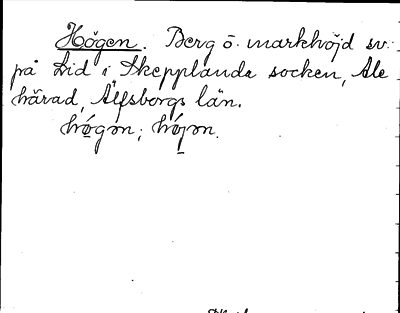 Högen. Berg o. markhöjd sv.
på Lid i Skepplanda socken, Ale
härad, Älfsborgs län.
hǿgən; hǿjən.